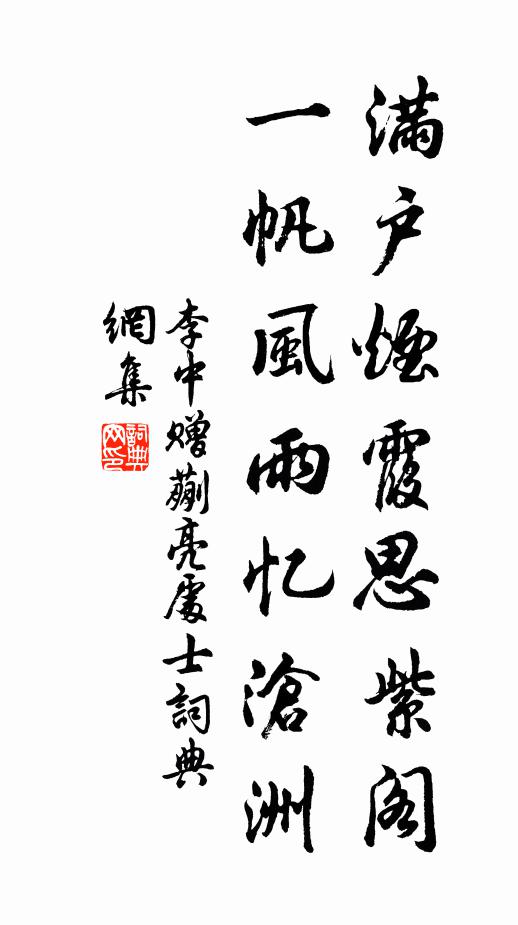 满户煙霞思紫阁
一帆風雨忆滄洲
李中赠蒯亮處士詞典
網集
詞典
网印